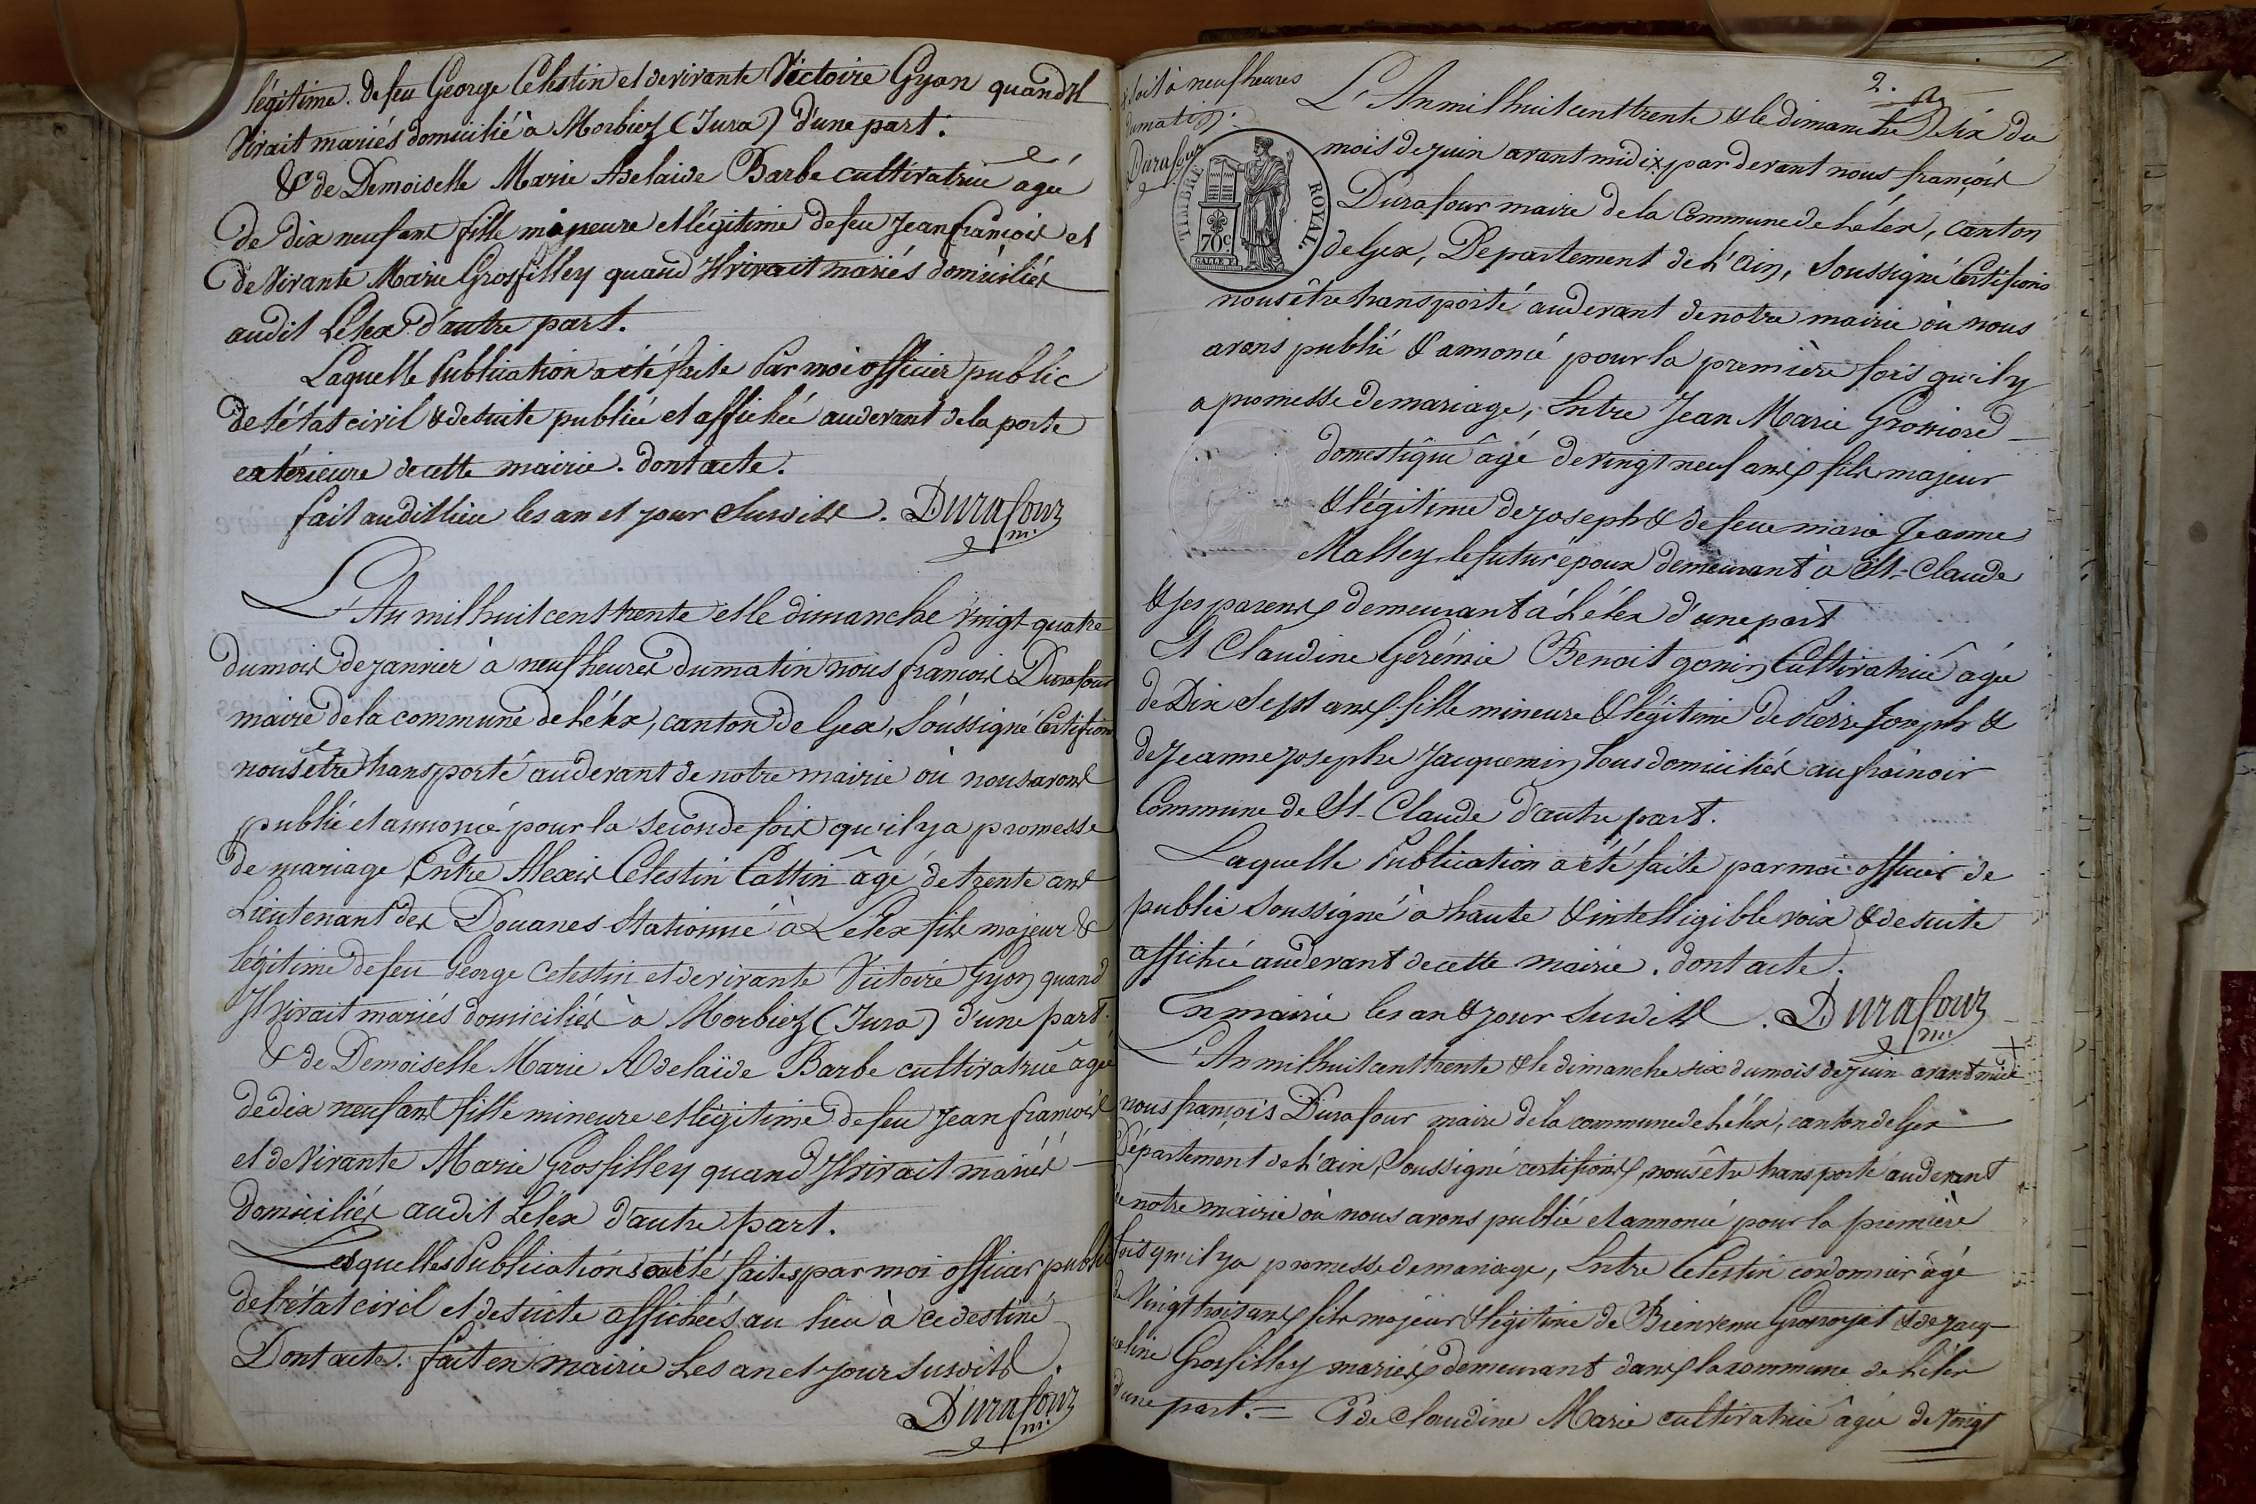 légitime de feu George Célestin et de vivante Victoire Gyon quand Il
Vivait mariés domicilié à Morbiez (Jura) d'une part.
& de Demoiselle Marie Adelaide Barbe cultivatrice agée
de dix neuf ans fille mineure et légitime de feu Jean françois et
de Vivante Marie Grosfilley quand Il vivait mariés domiciliés
audit Lélex d'autre part.
Laquelle Publication a été faite Par moi officier public
de l'état civil & de suite publiée et affichée audevant de la porte
extérieure de cette mairie. dont acte.
fait audit lieu les an et jour susdits. Durafour
m.
L'An mil huit cent trente et le dimanche vingt quatre
du mois de janvier à neuf heures du matin nous françois Durafour
maire de la commune de Lélex, canton de Gex, Soussigné Certifions
nous être transporté audevant de notre mairie où nous avons
publié et annoncé pour la seconde fois qu'il y a promesse
de mariage Entre Alexis Célestin Cattin âgé de trente ans
Lieutenant des Douanes Stationné à Lélex fils majeur &
légitime de feu George Celestin et de vivante Victoire Gyon quand
Il vivait mariés domiciliés à Morbiez (Jura) d'une part.
& de Demoiselle Marie Adelaïde Barbe cultivatrice âgée
de dix neuf ans fille mineure et légitime de feu Jean françois
et de Vivante Marie Grosfilley quand Il vivait mariés
domiciliés audit Lélex d'autre part.
Lesquelles Publications ont été faites par moi officier public
de l'état civil et de suite affichées au lieu à ce destiné
Dont acte. fait en mairie Les an et jour susdits.
Durafour
m.
2.
soit à neuf heures
du matin.
Durafour
TIMBRE ROYAL
70c
L'An mil huit cent trente & le dimanche six du
mois de juin avant midi par devant nous françois
Durafour maire de la Commune de Lélex, canton
de Gex, Département de L'Ain, Soussigné Certifions
nous être transporté audevant de notre mairie où nous
avons publié & annoncé pour la première fois qu'il y
a promesse de mariage, Entre Jean Marie Grossiord
domestique âgé de vingt neuf ans fils majeur
& légitime de joseph & de feue marie Jeanne
Malley, le futur époux demeurant à St-Claude
& ses parens demeurant à Lélex d'une part
Et Claudine Gérémie Benoit gonin Cultivatrice âgée
de Dix Sept ans fille mineure & légitime de Pierre Joseph &
de Jeanne josephe Jacquemin tous domiciliés au frainoir
Commune de St-Claude d'autre part.
Laquelle Publication a été faite par moi officier de
public Soussigné à haute & intelligible voix & de suite
affichée audevant de cette mairie. dont acte.
En mairie les an & jour susdits. Durafour
m.
L'An mil huit cent trente & le dimanche six du mois de juin avant midi
nous françois Durafour maire de la commune de Lélex, canton de Gex
Département de L'ain, Soussigné certifions, nous être transporté audevant
de notre mairie où nous avons publié et annoncé pour la première
fois qu'il y a promesse de mariage, Entre Célestin cordonnier âgé
de Vingt trois ans fils majeur & légitime de Bienvenu Grosrojat & de jacq-
ueline Grosfilley mariés demeurant dans la commune de Lélex
d'une part. = Et de Claudine Marie cultivatrice âgée de Vingt